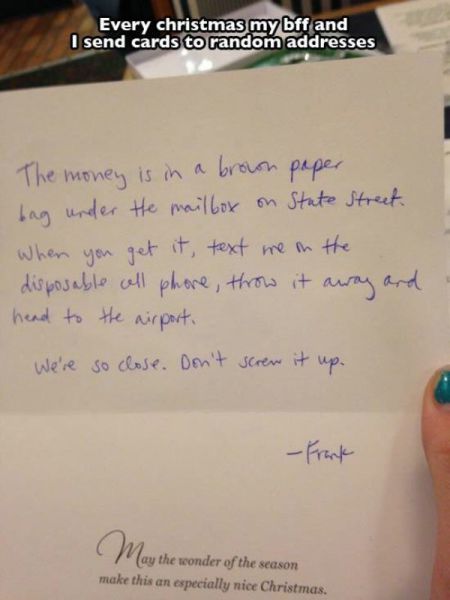 Every christmas my bff and
I send cards to random addresses
The money is in a brown paper
bag under the mailbox on State Street.
When you get it, text me on the
disposable cell phone, throw it away and
head to the airport.
We're so close. Don't screw it up.
-Frank
May the wonder of the season
make this an especially nice Christmas.